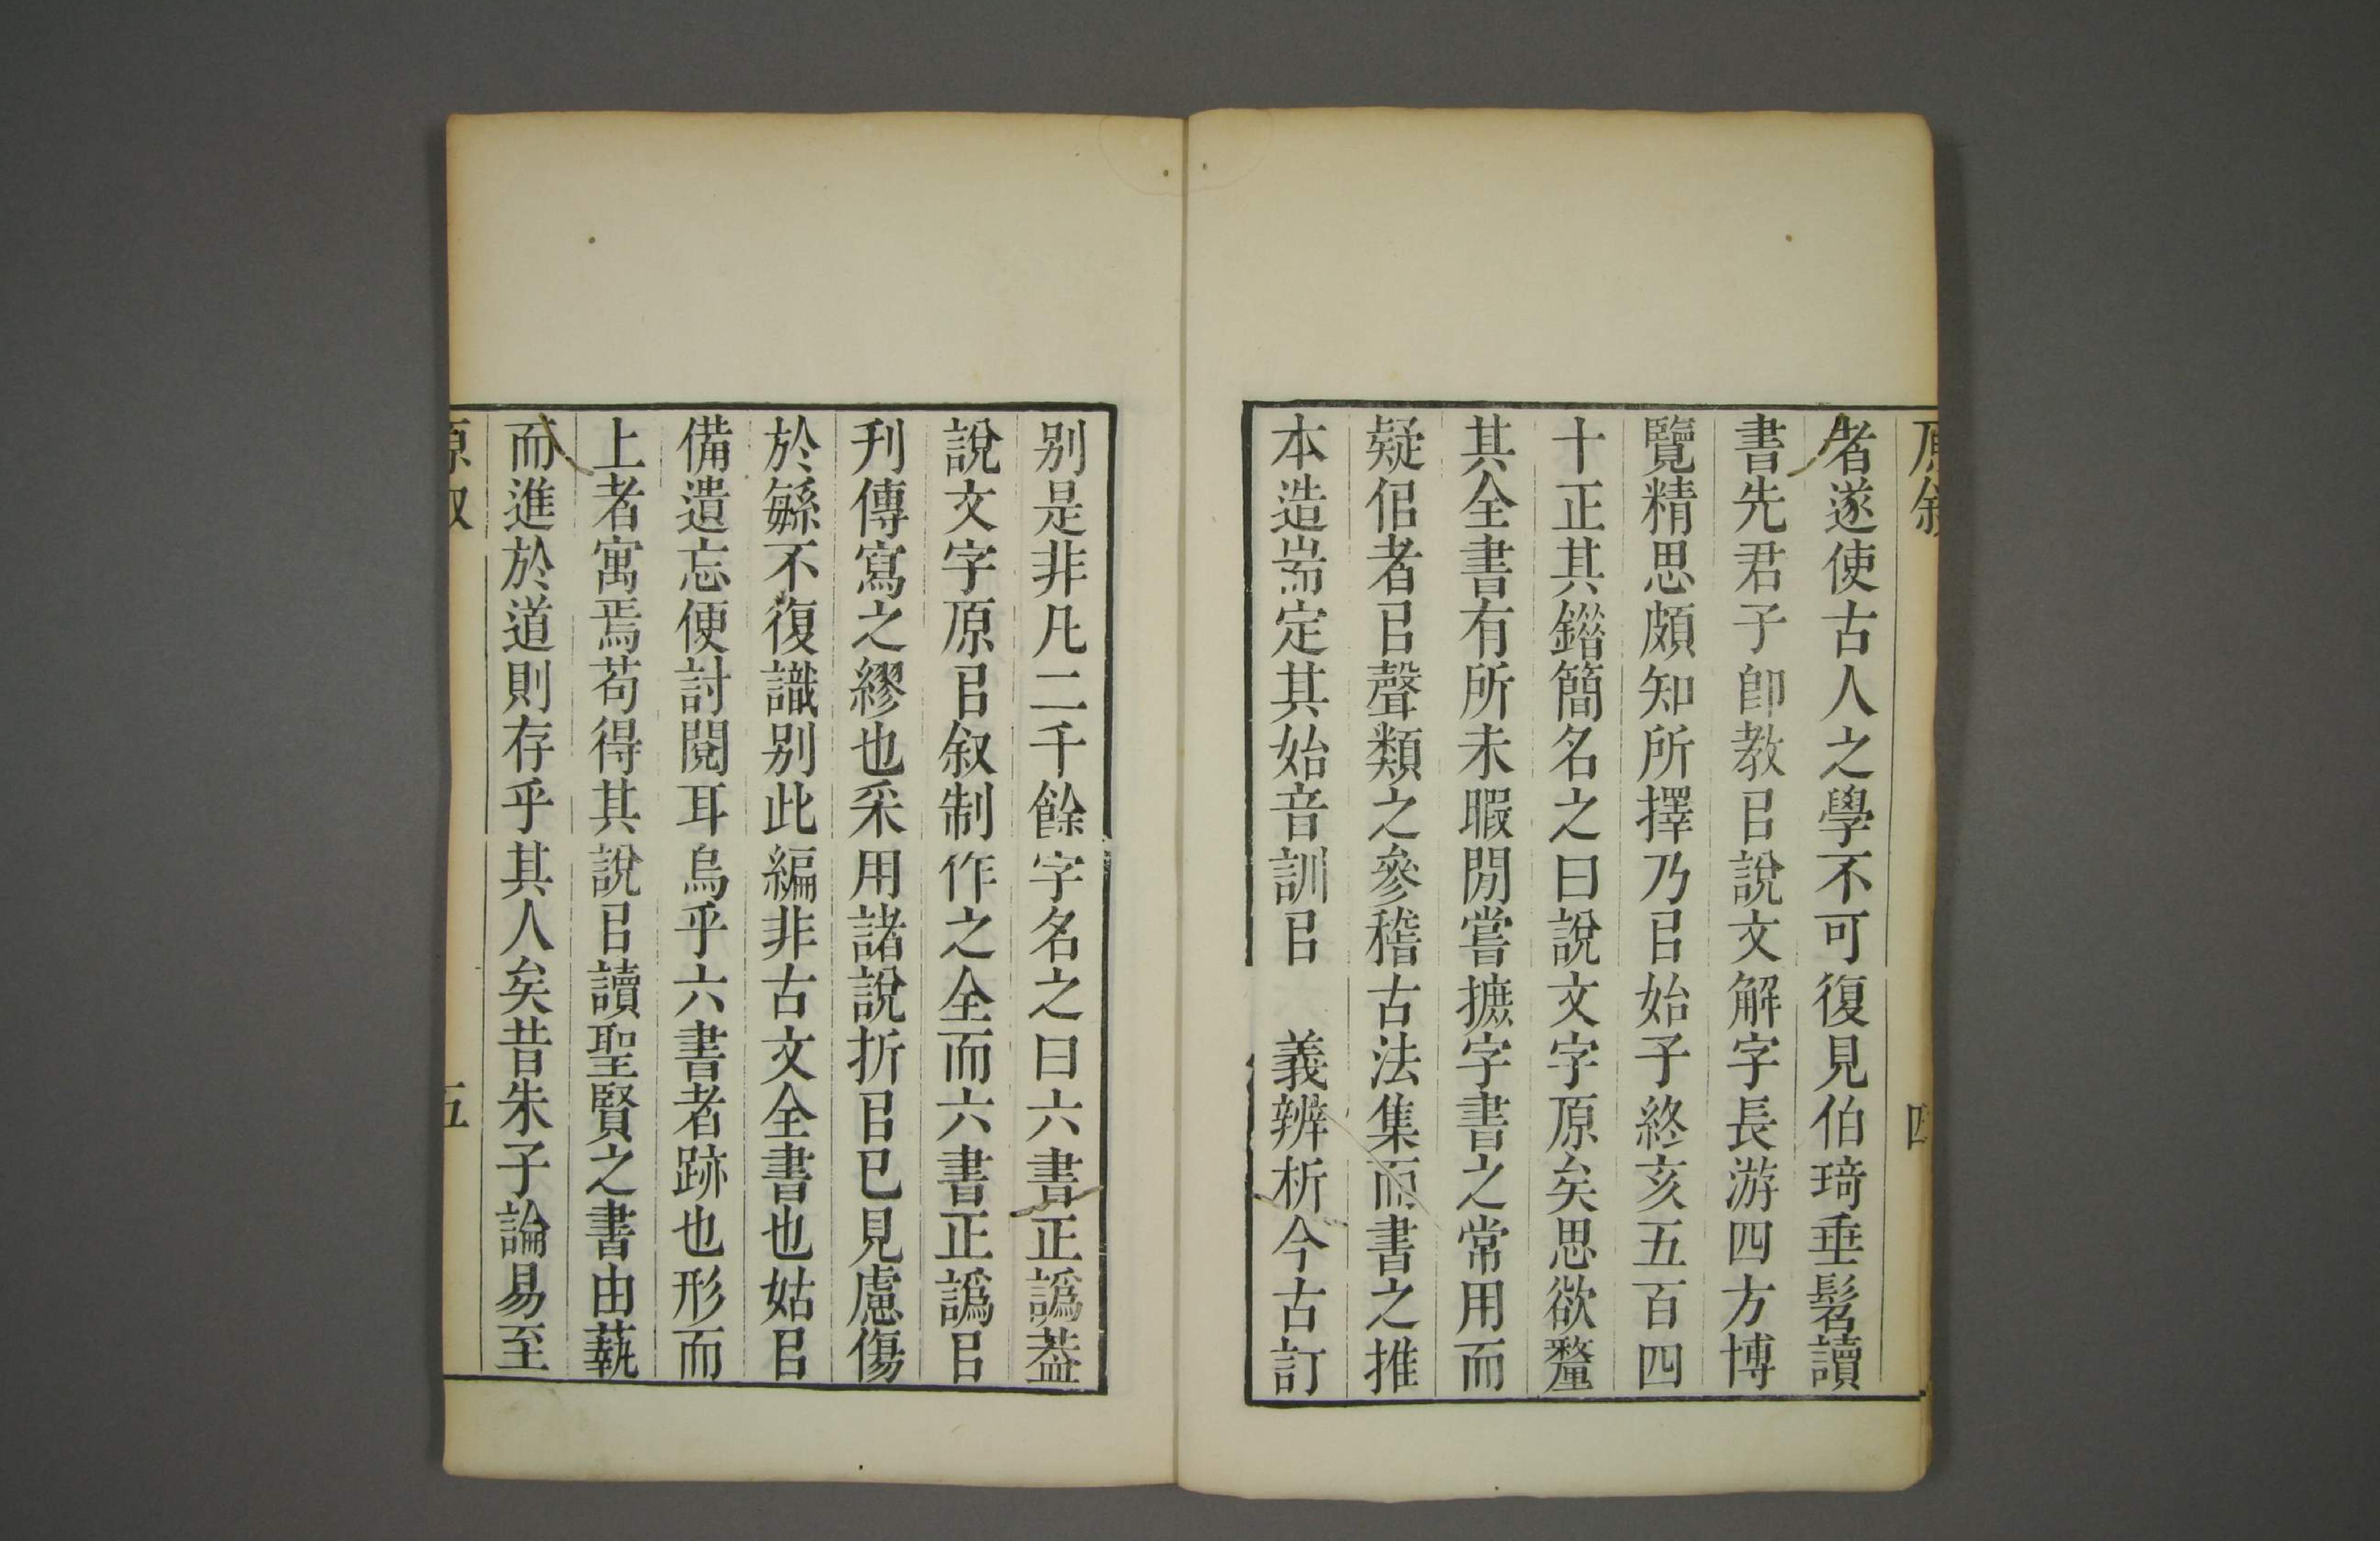 原敘
四
者遂使古人之學不可復見伯琦垂髫讀
書先君子卽教㠯說文解字長游四方博
覽精思頗知所擇乃㠯始子終亥五百四
十正其鐕簡名之曰說文字原矣思欲釐
其全書有所未暇閒嘗摭字書之常用而
疑佀者㠯聲類之參稽古法集而書之推
本造耑定其始音訓㠯　義辨析今古訂
别是非凡二千餘字名之曰六書正譌葢
說文字原㠯叙制作之全而六書正譌㠯
刋傳寫之繆也采用諸說折㠯已見慮傷
於緐不復識别此編非古文全書也姑㠯
備遺忘便討閱耳烏乎六書者跡也形而
上者寓焉苟得其說㠯讀聖賢之書由蓺
而進於道則存乎其人矣昔朱子論易至
原叙
五